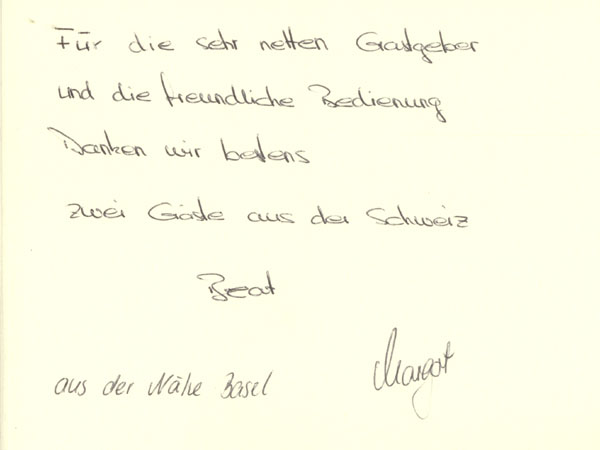 Für die sehr netten Gastgeber
und die freundliche Bedienung
Danken wir bestens
zwei Gäste aus der Schweiz
Beat
Margot
aus der Nähe Basel